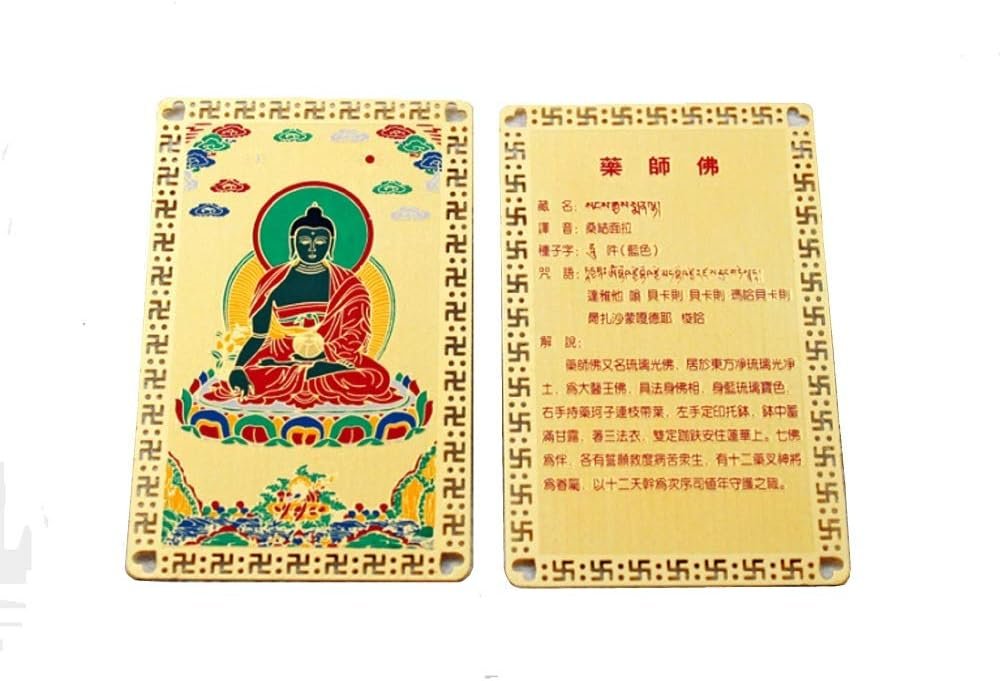 藥師佛
藏 名:
譯 音:桑結面拉
種子字: 件(藍色)
咒 語:
達雅他 嗡 貝卡則 貝卡則 瑪哈貝卡則
局扎沙蒙嘎德耶 梭哈
解 說:
藥師佛又名琉璃光佛,居於東方凈琉璃光凈
土,為大醫王佛,具法身佛相,身藍琉璃寶色,
右手持藥珂子連枝帶葉,左手定印托鉢,鉢中蓄
滿甘露,著三法衣,雙定跏趺安住蓮華上。七佛
為伴,各有誓願救度病苦衆生,有十二藥叉神將
為眷屬,以十二天幹為次序司值年守護之職。